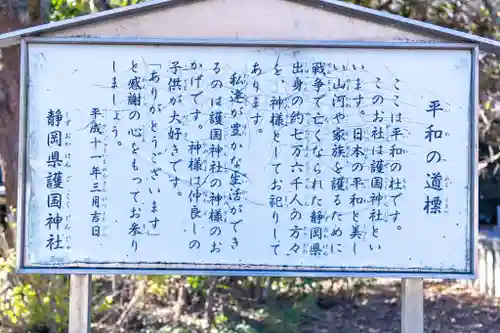 平和の道標
ここは平和の杜です。
このお社は護国神社とい
います。日本の平和と美し
い山河や家族を護るために
戦争で亡くなられた静岡県
出身の約七万六千人の方々
を、神様としてお祀りして
あります。
私達が豊かな生活ができ
るのは護国神社の神様のお
かげです。神様は仲良しの
子供が大好きです。
「ありがとうございます」
と感謝の心をもってお参り
しましょう。
平成十一年三月吉日
静岡県護国神社